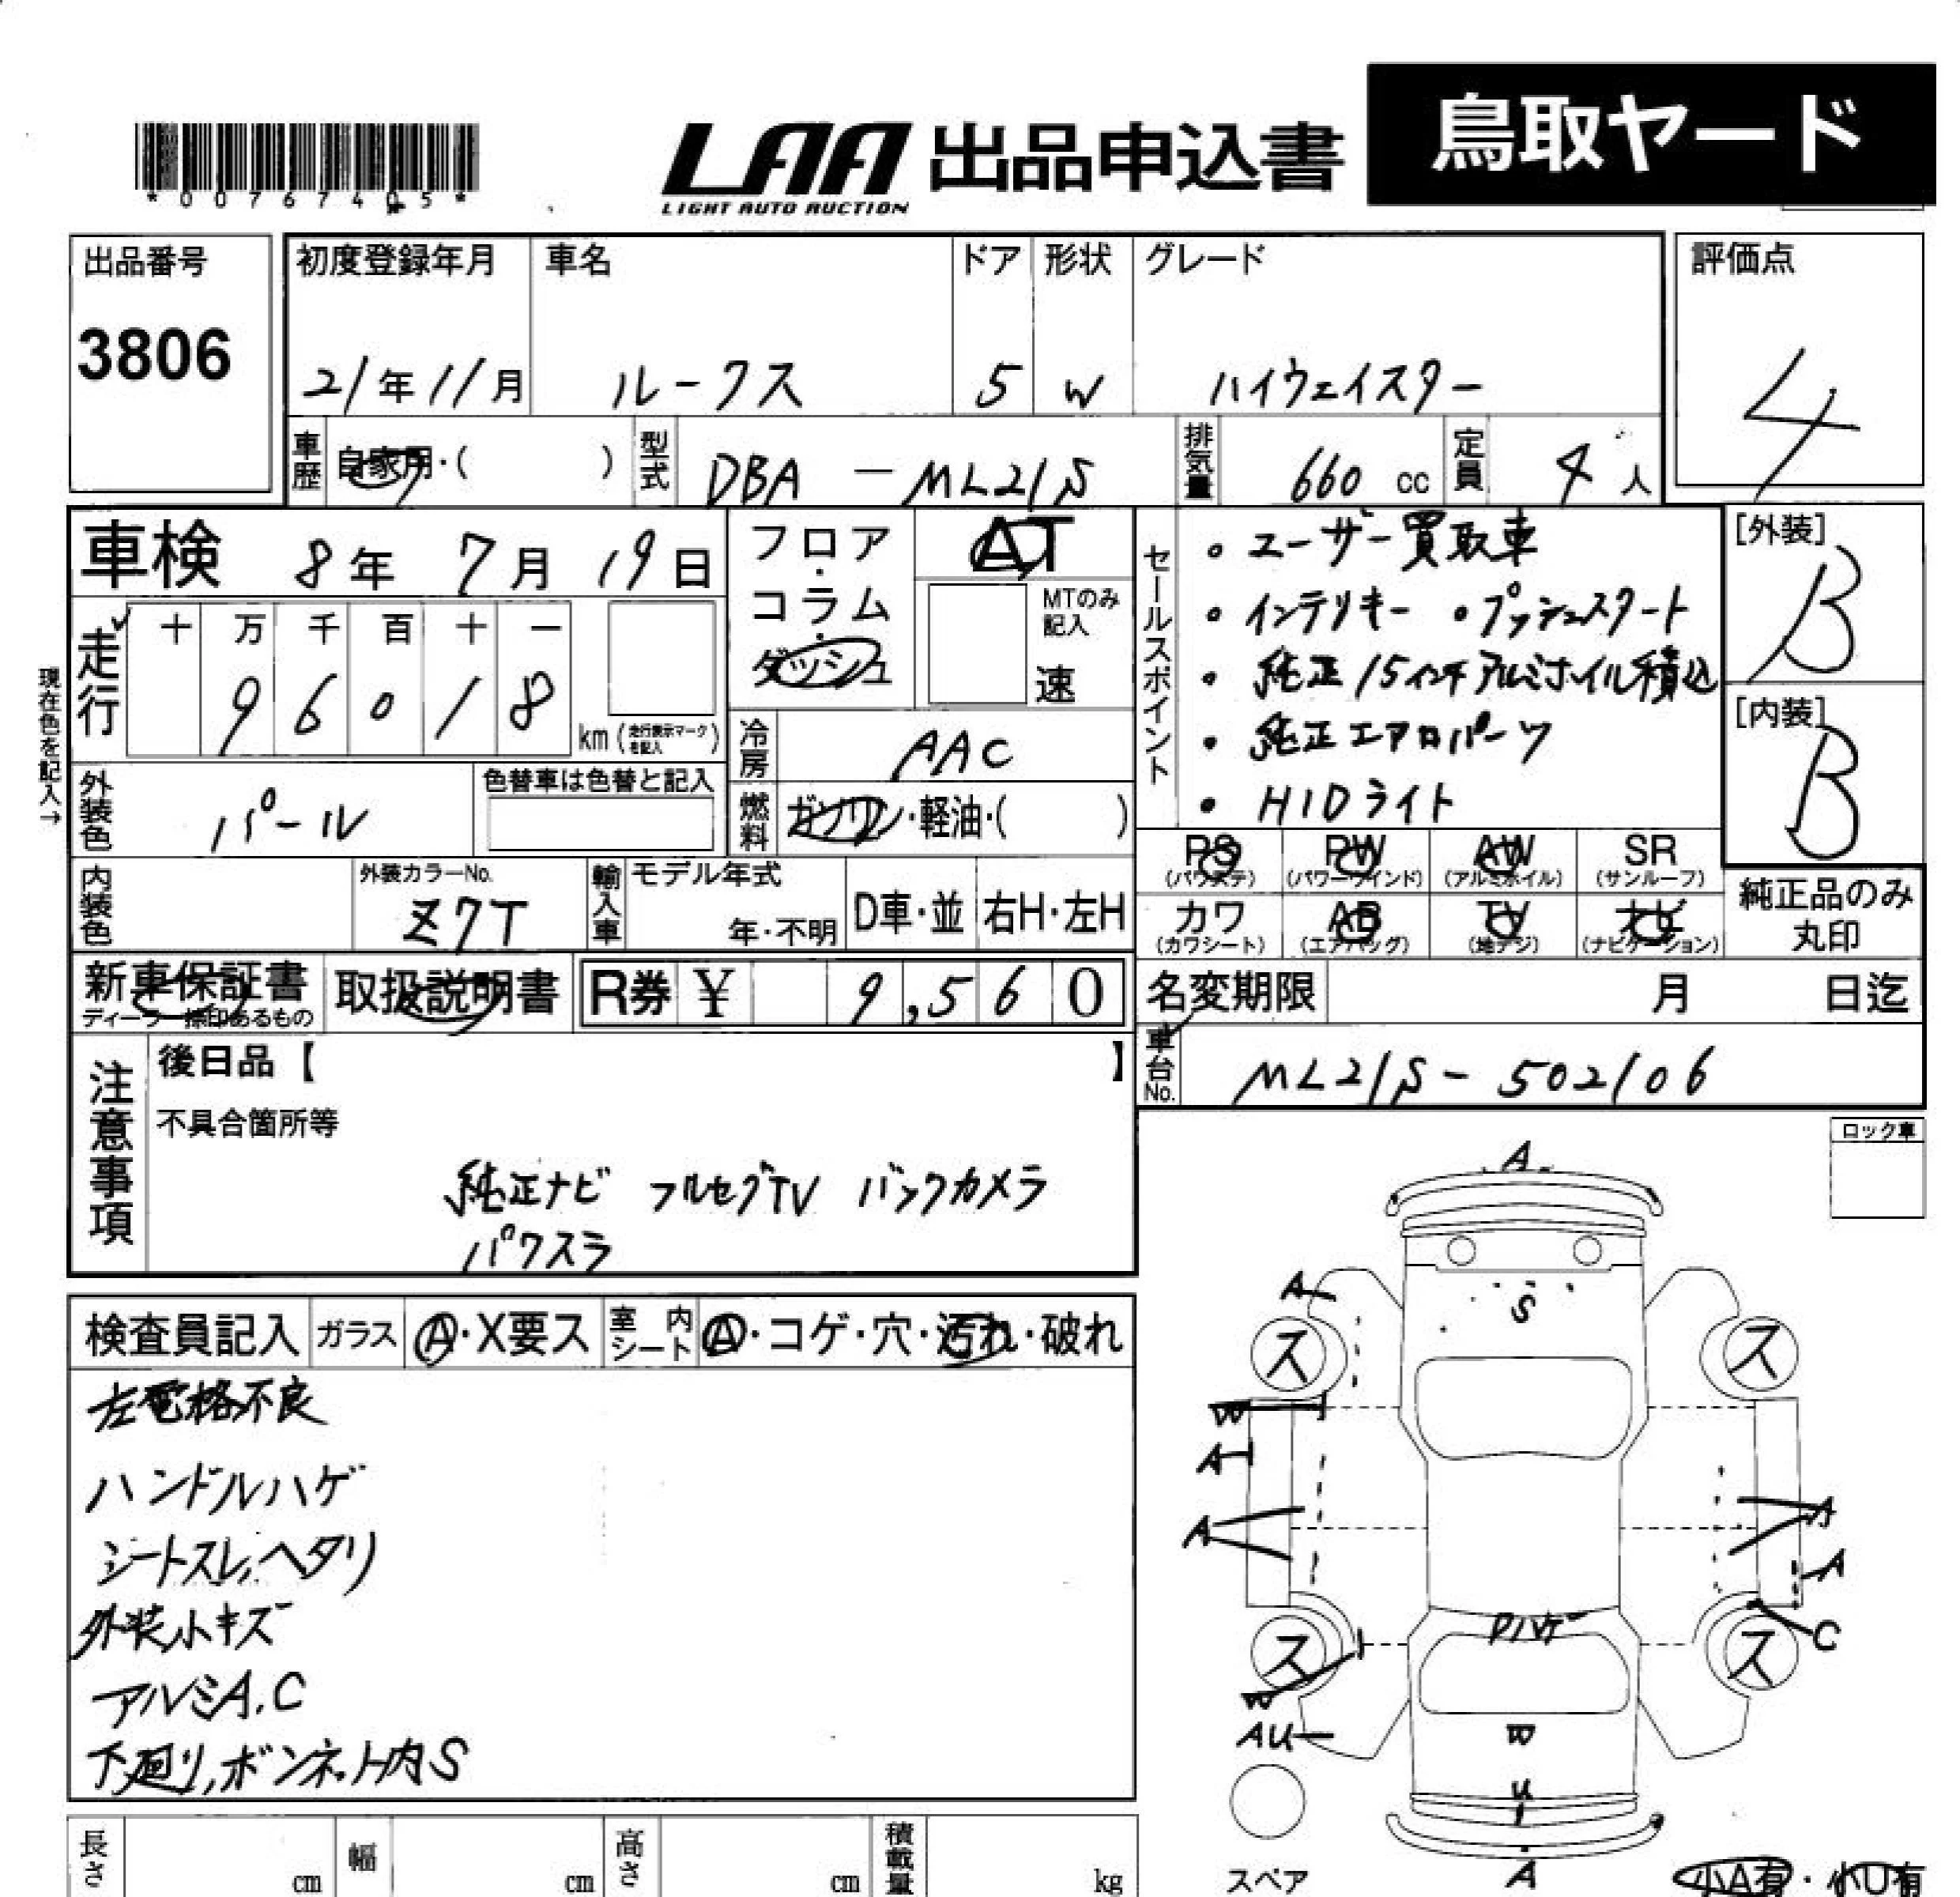 鳥取ヤード
LAA 出品申込書
LIGHT AUTO AUCTION
*00767405*
出品番号
3806
初度登録年月 車名 ドア 形状 グレード
21年11月 ルークス 5 W ハイウェイスター
評価点
4
車歴 自家用・( ) 型式 DBA-ML21S 排気量 660 cc 定員 4人
車検 8年7月19日
フロア・コラム・ダッシュ
AT
MTのみ記入
速
セールスポイント
・ユーザー買取車
・インテリキー ・プッシュスタート
・純正15インチアルミホイル積込
・純正エアロパーツ
・HIDライト
[外装]
B
[内装]
B
現在色を記入→
走行 十 万 千 百 十 一
96018 km (走行表示マークを記入)
冷房 AAC
外装色 パール 色替車は色替と記入
燃料 ガソリン・軽油・( )
内装色 外装カラーNo. Z7T
輸入車 モデル年式 年・不明 D車・並 右H・左H
PS (パワステ) PW (パワーウインド) AW (アルミホイル) SR (サンルーフ)
カワ (カワシート) AB (エアバッグ) TV (地デジ) ナビ (ナビゲーション)
純正品のみ丸印
新車保証書 ディーラー捺印あるもの 取扱説明書 R券 ¥ 9,560
名変期限 月 日迄
車台No. ML21S-502106
注意事項
後日品【 】
不具合箇所等
純正ナビ フルセグTV バックカメラ
パワスラ
ロック車
検査員記入 ガラス A・X要ス 室内シート A・コゲ・穴・汚れ・破れ
左電格不良
ハンドルハゲ
シートスレ、ヘタリ
外装小キズ
アルミA.C
下廻り,ボンネット内S
A
A
S
ス ス
W
A
A
A
A
Pハゲ
C
ス ス
W
AU
W
U
A
スペア
小A有・小U有
長さ cm 幅 cm 高さ cm 積載量 kg